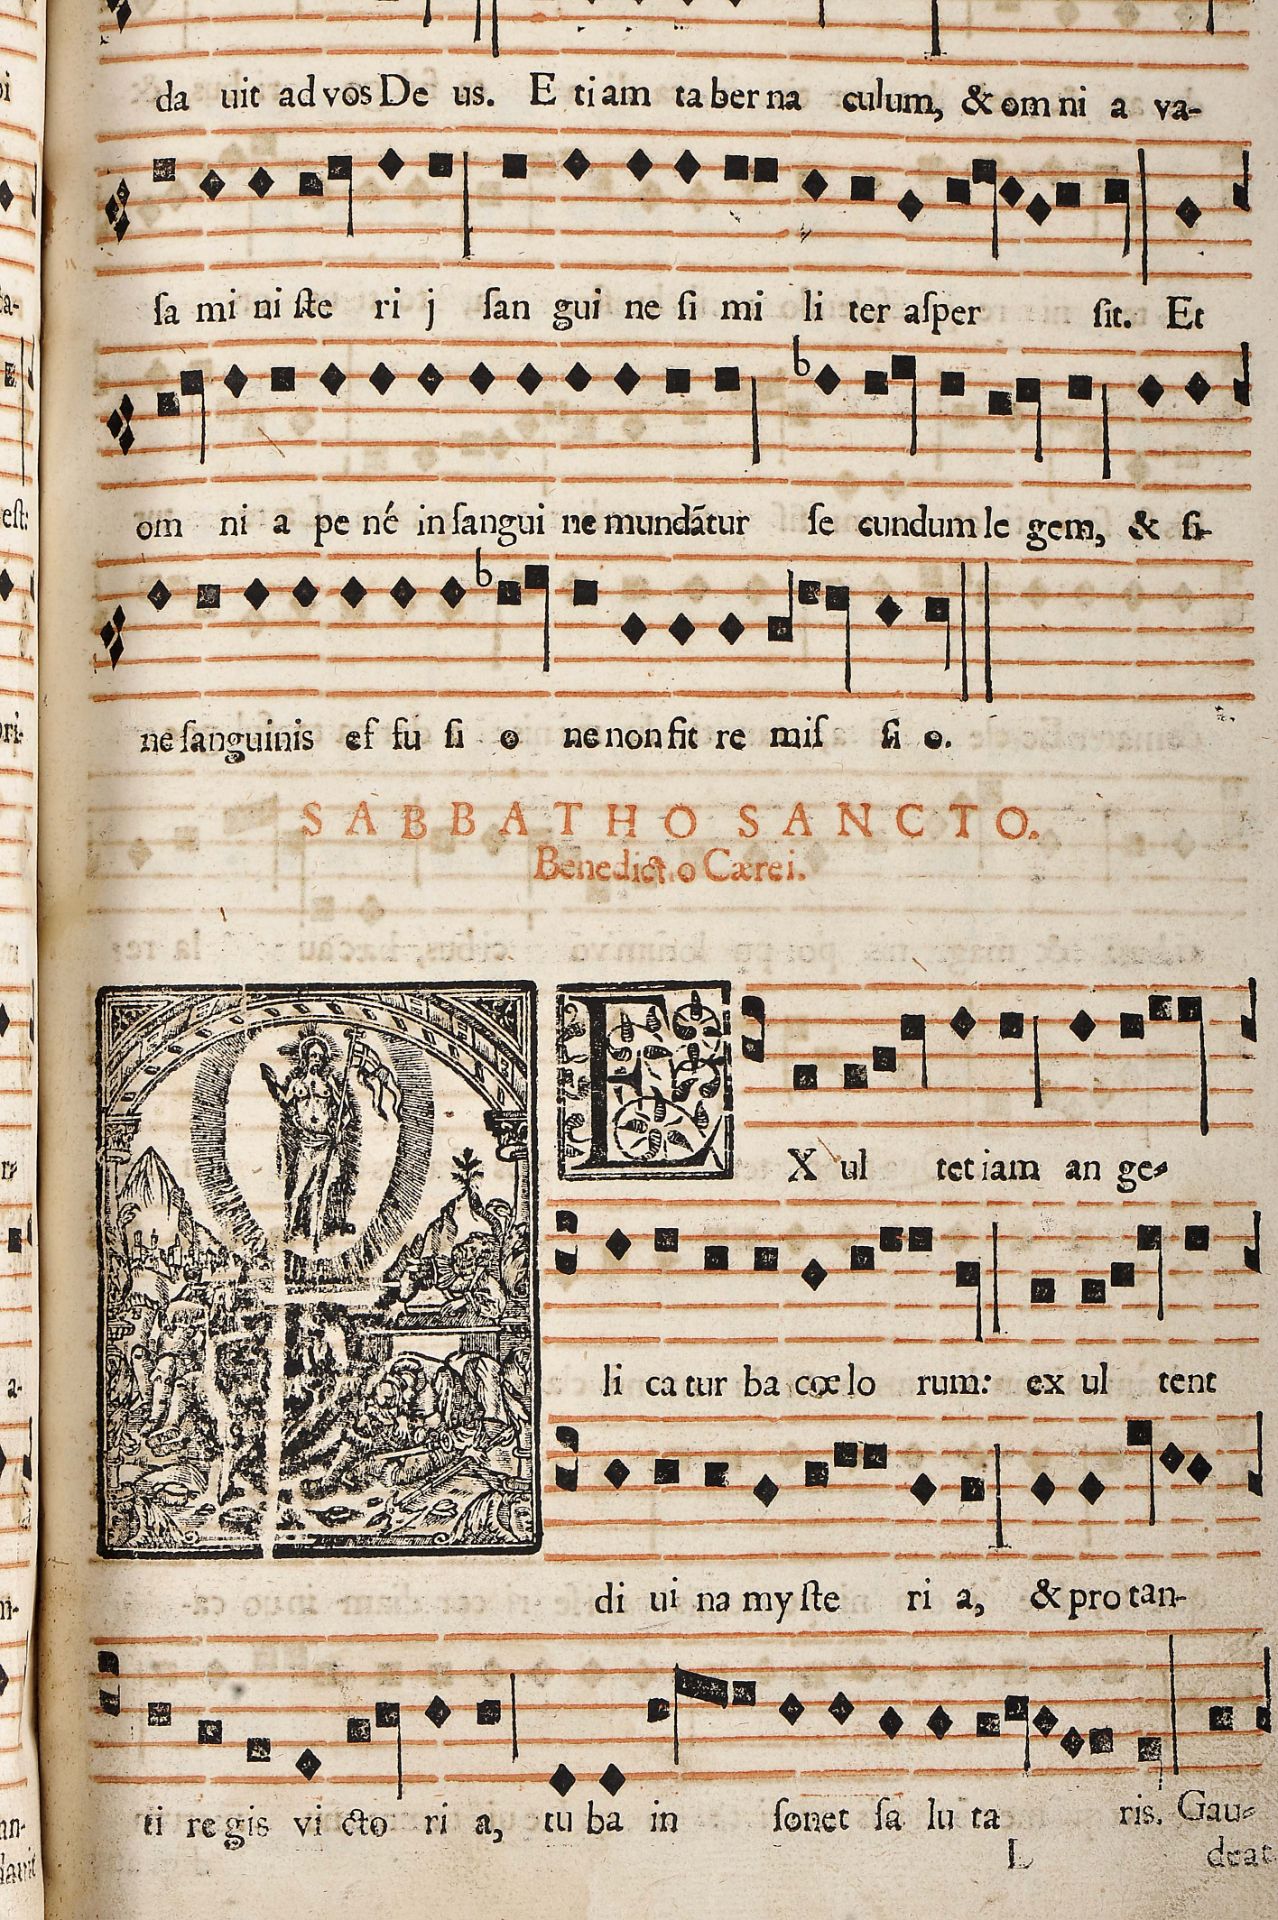 da uit ad vos De us. E ti am ta ber na culum, & om ni a va-
sa mi ni ste ri j san gui ne si mi li ter asper sit. Et
om ni a pe né in sangui ne mundãtur se cundum le gem, & si-
ne sanguinis ef fu si o ne non fit re mis si o.
SABBATHO SANCTO.
Benedict.o Cærei.
EX ul tet iam an ge-
li ca tur ba cœ lo rum: ex ul tent
di ui na my ste ri a, & pro tan-
ti re gis vi cto ri a, tu ba in sonet sa lu ta ris. Gau-
L deat